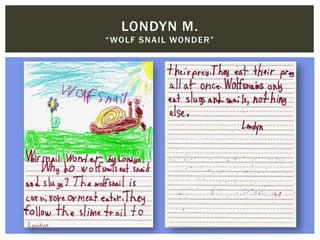 LONDYN M.
"WOLF SNAIL WONDER"
Wolf Snail
Wolf snail Wonder by Londyn
Why Do wolf snails eat snails
and slugs? The wolf snail is
carnivore or meat eater. They
follow the slime trail to
London
their prey. They eat their prey
all at once. Wolf snails only
eat slugs and snails, nothing
else.
Londyn